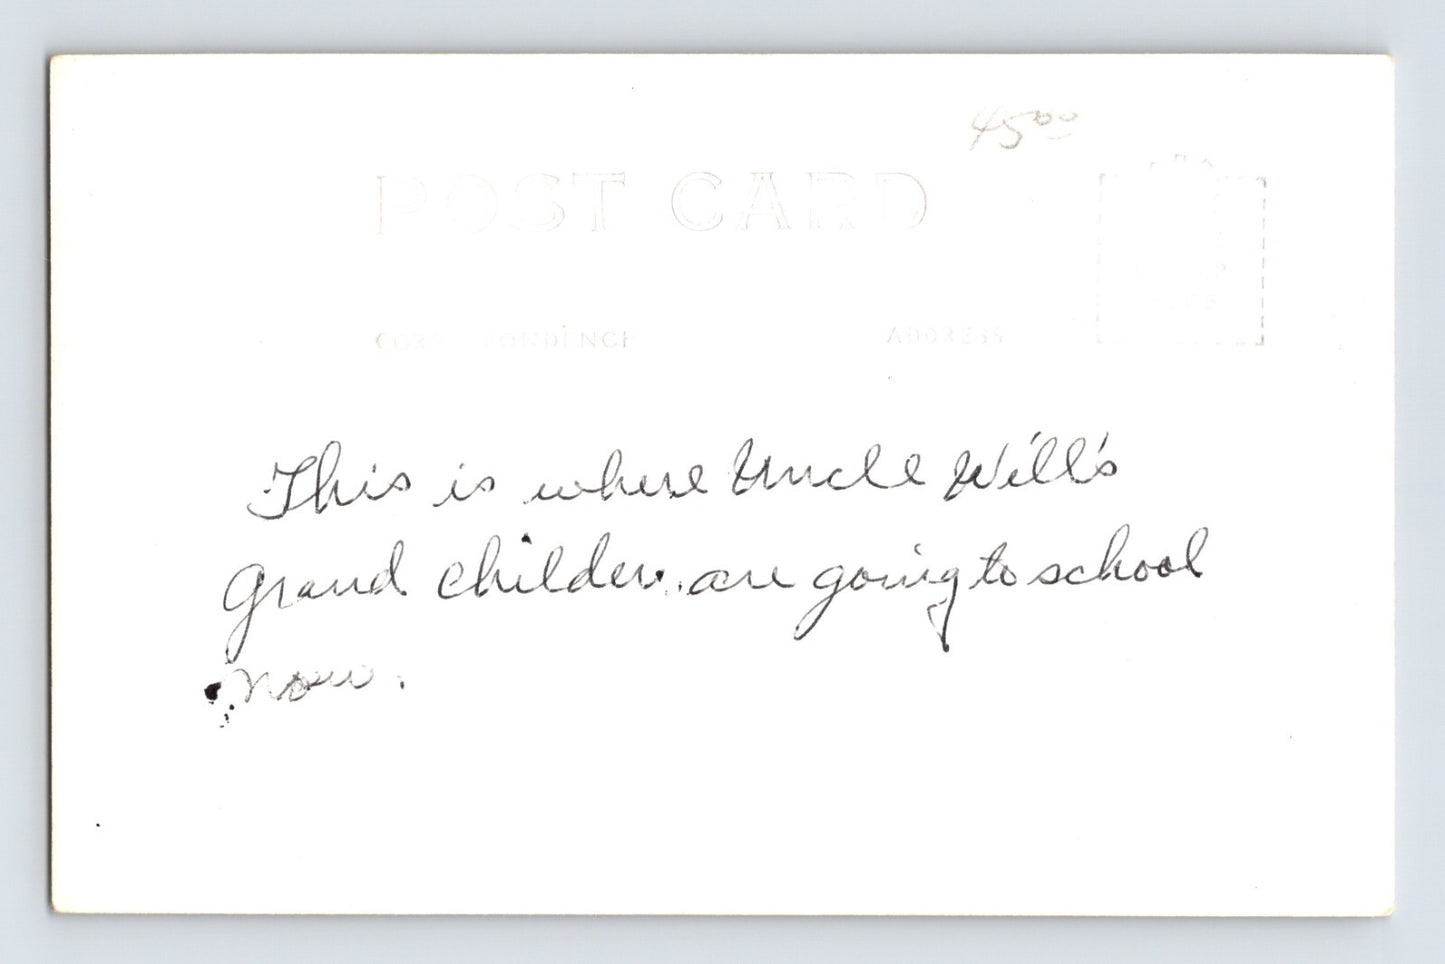 45.00
POST CARD
PLACE
CORRESPONDENCE ADDRESS
This is where Uncle Will's
Grand childer. are going to school
now.